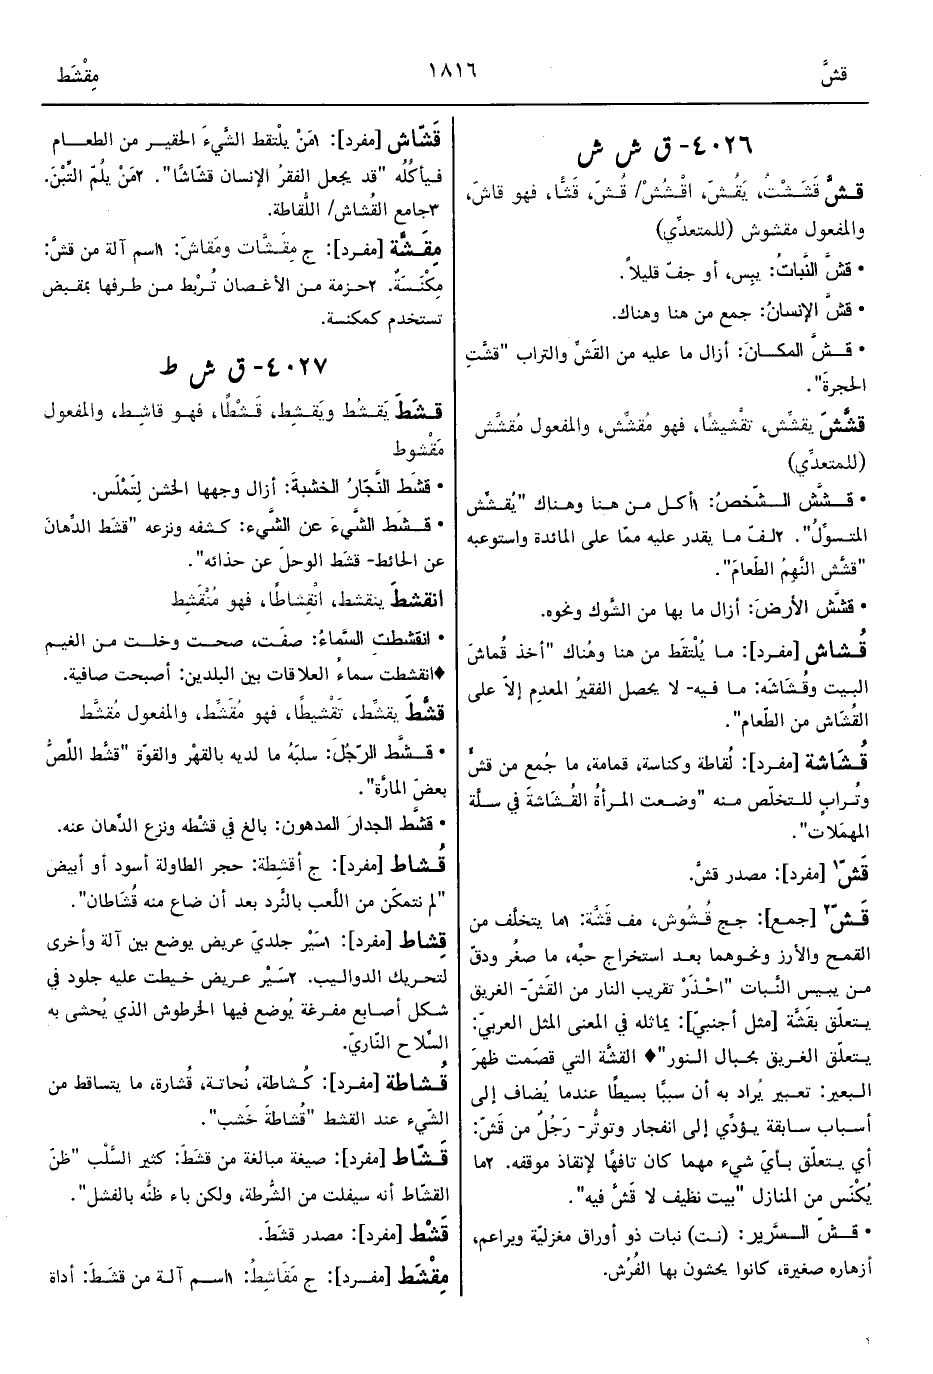 قشَّ
١٨١٦
مِقْشَط
٤٠٢٦- ق ش ش
قشَّ قَشَشْتُ، يَقُشّ، اقْشُشْ/ قُشّ، قَشًّا، فهو قاشّ،
والمفعول مقشوش (للمتعدِّي)
• قشَّ النَّباتُ: يبِس، أو جفّ قليلاً.
• قشَّ الإنسانُ: جمع من هنا وهناك.
• قشَّ المكانَ: أزال ما عليه من القَشّ والتراب "قشَّتِ
الحجرةَ".
قشَّشَ يقشِّش، تقْشيشًا، فهو مُقشِّش، والمفعول مُقشَّش
(للمتعدِّي)
• قشَّش الشَّخصُ: ١أكل من هنا وهناك "يُقشِّش
المتسوِّلُ". ٢لفّ ما يقدر عليه ممّا على المائدة واستوعبه
"قشَّش النَّهِمُ الطّعامَ".
• قشَّش الأرضَ: أزال ما بها من الشَّوك ونحوه.
قُشاش [مفرد]: ما يُلْتقَط من هنا وهُناك "أخذ قُماشَ
البيت وقُشَاشَه: ما فيه- لا يحصل الفقيرُ المعدِم إلاّ على
القُشَاش من الطّعام".
قُشاشة [مفرد]: لُقاطة وكناسة، قمامة، ما جُمع من قشٍّ
وتُرابٍ للتخلّص منه "وضعت المرأةُ القُشاشةَ في سلَّة
المهمَلات".
قَشّ١ [مفرد]: مصدر قشَّ.
قَشّ٢ [جمع]: جج قُشُوش، مف قَشَّة: ١ما يتخلَّف من
القمح والأرز ونحوهما بعد استخراج حبِّه، ما صغُر ودقّ
من يبيس النَّبات "احْذَرْ تقريب النار من القَشّ- الغريق
يتعلّق بقَشَّة [مثل أجنبيّ]: يماثله في المعنى المثل العربيّ:
يتعلّق الغريق بحبال النور"♦ القشَّة التي قصَمت ظهرَ
البعير: تعبير يُراد به أن سببًا بسيطًا عندما يُضاف إلى
أسباب سابقة يؤدِّي إلى انفجار وتوتُّر- رَجُلٌ من قَشّ:
أي يتعلّق بأيّ شيء مهما كان تافهًا لإنقاذ موقفه. ٢ما
يُكْنَس من المنازل "بيت نظيف لا قَشَّ فيه".
• قشّ السَّرير: (نت) نبات ذو أوراق مغزليّة وبراعم،
أزهاره صغيرة، كانوا يحشون بها الفُرُش.
قَشّاش [مفرد]: ١مَنْ يلْتقط الشَّيءَ الحقير من الطعام
فيأكُلُه "قد يجعل الفقرُ الإنسان قشّاشًا". ٢مَنْ يلُمّ التِّبْنَ.
٣جامع القُشاش/ اللُّقاطة.
مِقشَّة [مفرد]: ج مِقَشَّات ومَقاشّ: ١اسم آلة من قشَّ:
مِكْنَسَةٌ. ٢حزمة من الأغصان تُربْط من طرفها بمقبض
تستخدم كمكنسة.
٤٠٢٧- ق ش ط
قشَطَ يَقشُط ويَقشِط، قَشْطًا، فهو قاشِط، والمفعول
مَقْشوط
• قشَط النَّجّارُ الخشبةَ: أزال وجهها الخشن لِتَمْلَس.
• قشَط الشَّيءَ عن الشَّيء: كشفه ونزعه "قشَط الدِّهانَ
عن الحائط- قشَط الوحلَ عن حذائه".
انقشطَ ينقشط، انْقِشاطًا، فهو مُنْقَشِط
• انقشطتِ السّماءُ: صفَت، صحت وخلت من الغيم
♦انقشطت سماءُ العلاقات بين البلدين: أصبحت صافية.
قشَّطَ يقشِّط، تَقْشيطًا، فهو مُقشِّط، والمفعول مُقشَّط
• قشَّط الرّجُلَ: سلبَهُ ما لديه بالقهْر والقوّة "قشَّط اللِّصُّ
بعضَ المارَّة".
• قشَّط الجدارَ المدهون: بالغ في قشْطه ونزع الدِّهان عنه.
قُشاط [مفرد]: ج أقشِطة: حجر الطاولة أسود أو أبيض
"لم نتمكّن من اللَّعب بالنَّرد بعد أن ضاع منه قُشَاطان".
قِشاط [مفرد]: ١سَيْر جلديّ عريض يوضع بين آلة وأخرى
لتحريك الدواليب. ٢سَيْر عريض خيطت عليه جلود في
شكل أصابع مفرغة يُوضع فيها الخرطوش الذي يُحشى به
السِّلاح النّاريّ.
قُشاطة [مفرد]: كُشاطة، نُحاتة، قُشارة، ما يتساقط من
الشّيء عند القشط "قُشاطةَ خَشب".
قَشّاط [مفرد]: صيغة مبالغة من قشَطَ: كثير السَّلْب "ظنّ
القشّاط أنه سيفلت من الشُّرطة، ولكن باء ظنُّه بالفشل".
قَشْط [مفرد]: مصدر قشَطَ.
مِقْشَط [مفرد]: ج مَقَاشِطُ: ١اسم آلة من قشَطَ: أداة